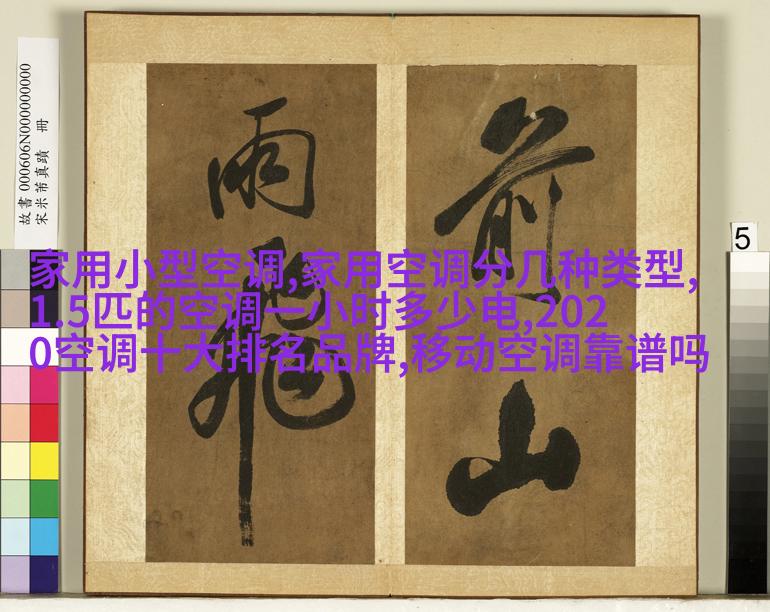 故書 000606N000000000
宋米芾真蹟 冊
前山
雨飛
5
家用小型空调,家用空调分几种类型,
1.5匹的空调一小时多少电,202
0空调十大排名品牌,移动空调靠谱吗